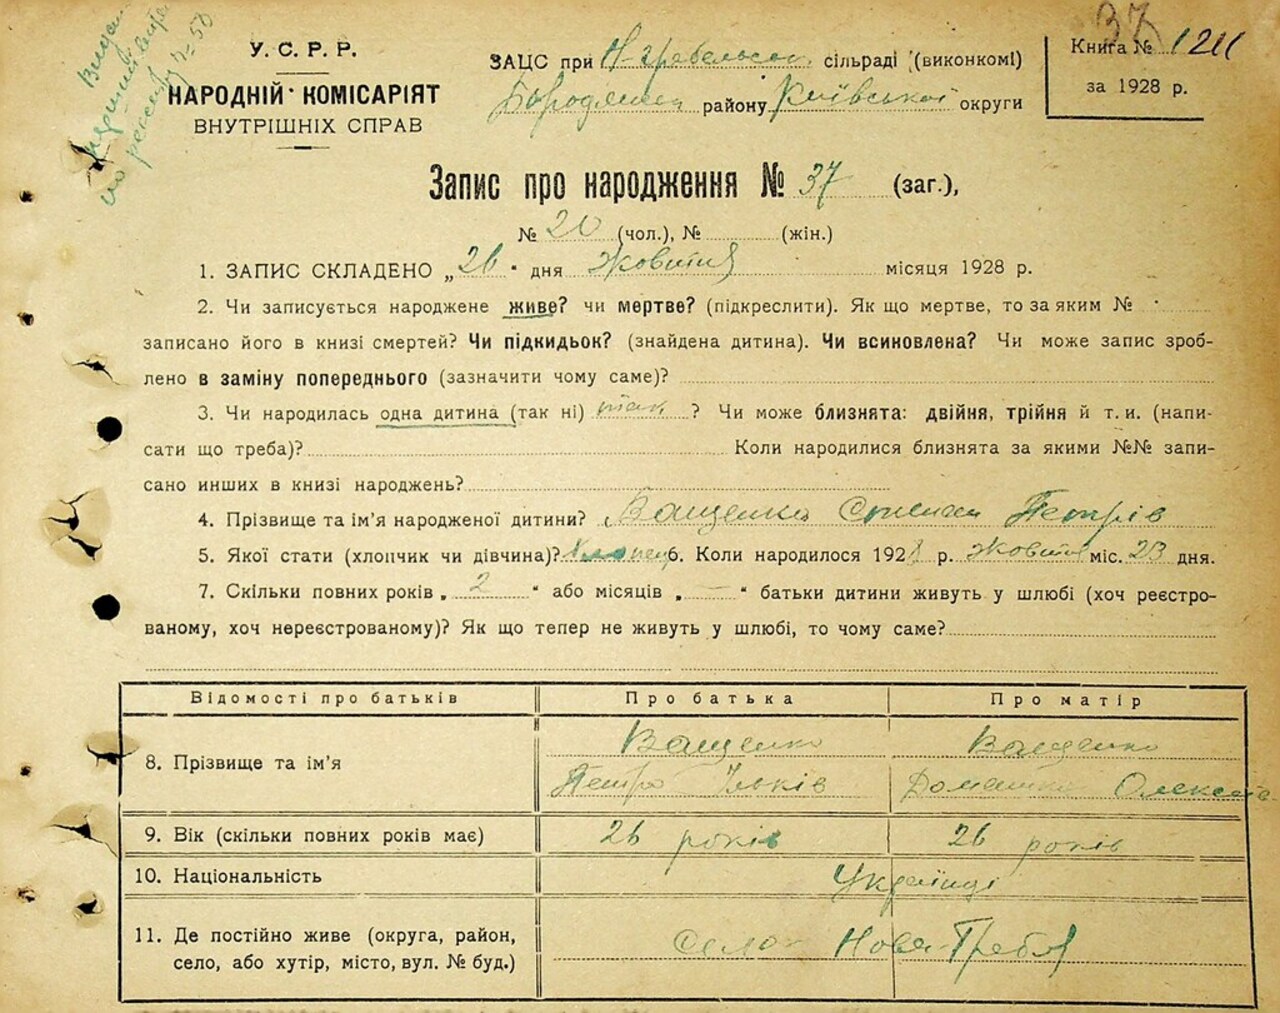 37
У. С. Р. Р.
НАРОДНІЙ КОМІСАРІЯТ
ВНУТРІШНІХ СПРАВ
ЗАЦС при Н-Гребельськ сільраді (виконкомі)
району Київської округи
Книга №
за 1928 р.
Запис про народження № 37 (заг.),
№ 20 (чол.), № (жін.)
1. ЗАПИС СКЛАДЕНО „26“ дня Жовтня місяця 1928 р.
2. Чи записується народжене живе? чи мертве? (підкреслити). Як що мертве, то за яким №
записано його в книзі смертей? Чи підкидьок? (знайдена дитина). Чи всиновлена? Чи може запис зроб-
лено в заміну попереднього (зазначити чому саме)?
3. Чи народилась одна дитина (так ні) так ? Чи може близнята: двійня, трійня й т. и. (напи-
сати що треба)? Коли народилися близнята за якими №№ запи-
сано инших в книзі народжень?
4. Прізвище та ім'я народженої дитини? Ващенко Степан Петрів
5. Якої стати (хлопчик чи дівчина)? Хлопець 6. Коли народилося 1928 р. Жовтня міс. 23 дня.
7. Скільки повних років „2“ або місяців „—“ батьки дитини живуть у шлюбі (хоч реєстро-
ваному, хоч нереєстрованому)? Як що тепер не живуть у шлюбі, то чому саме?
Відомості про батьків Про батька Про матір
8. Прізвище та ім'я Ващенко Ващенко
Петро Ільків Домашка Олексіїв
9. Вік (скільки повних років має) 26 років 26 років
10. Національність Українці
11. Де постійно живе (округа, район,
село, або хутір, місто, вул. № буд.) село Нова-Гребля